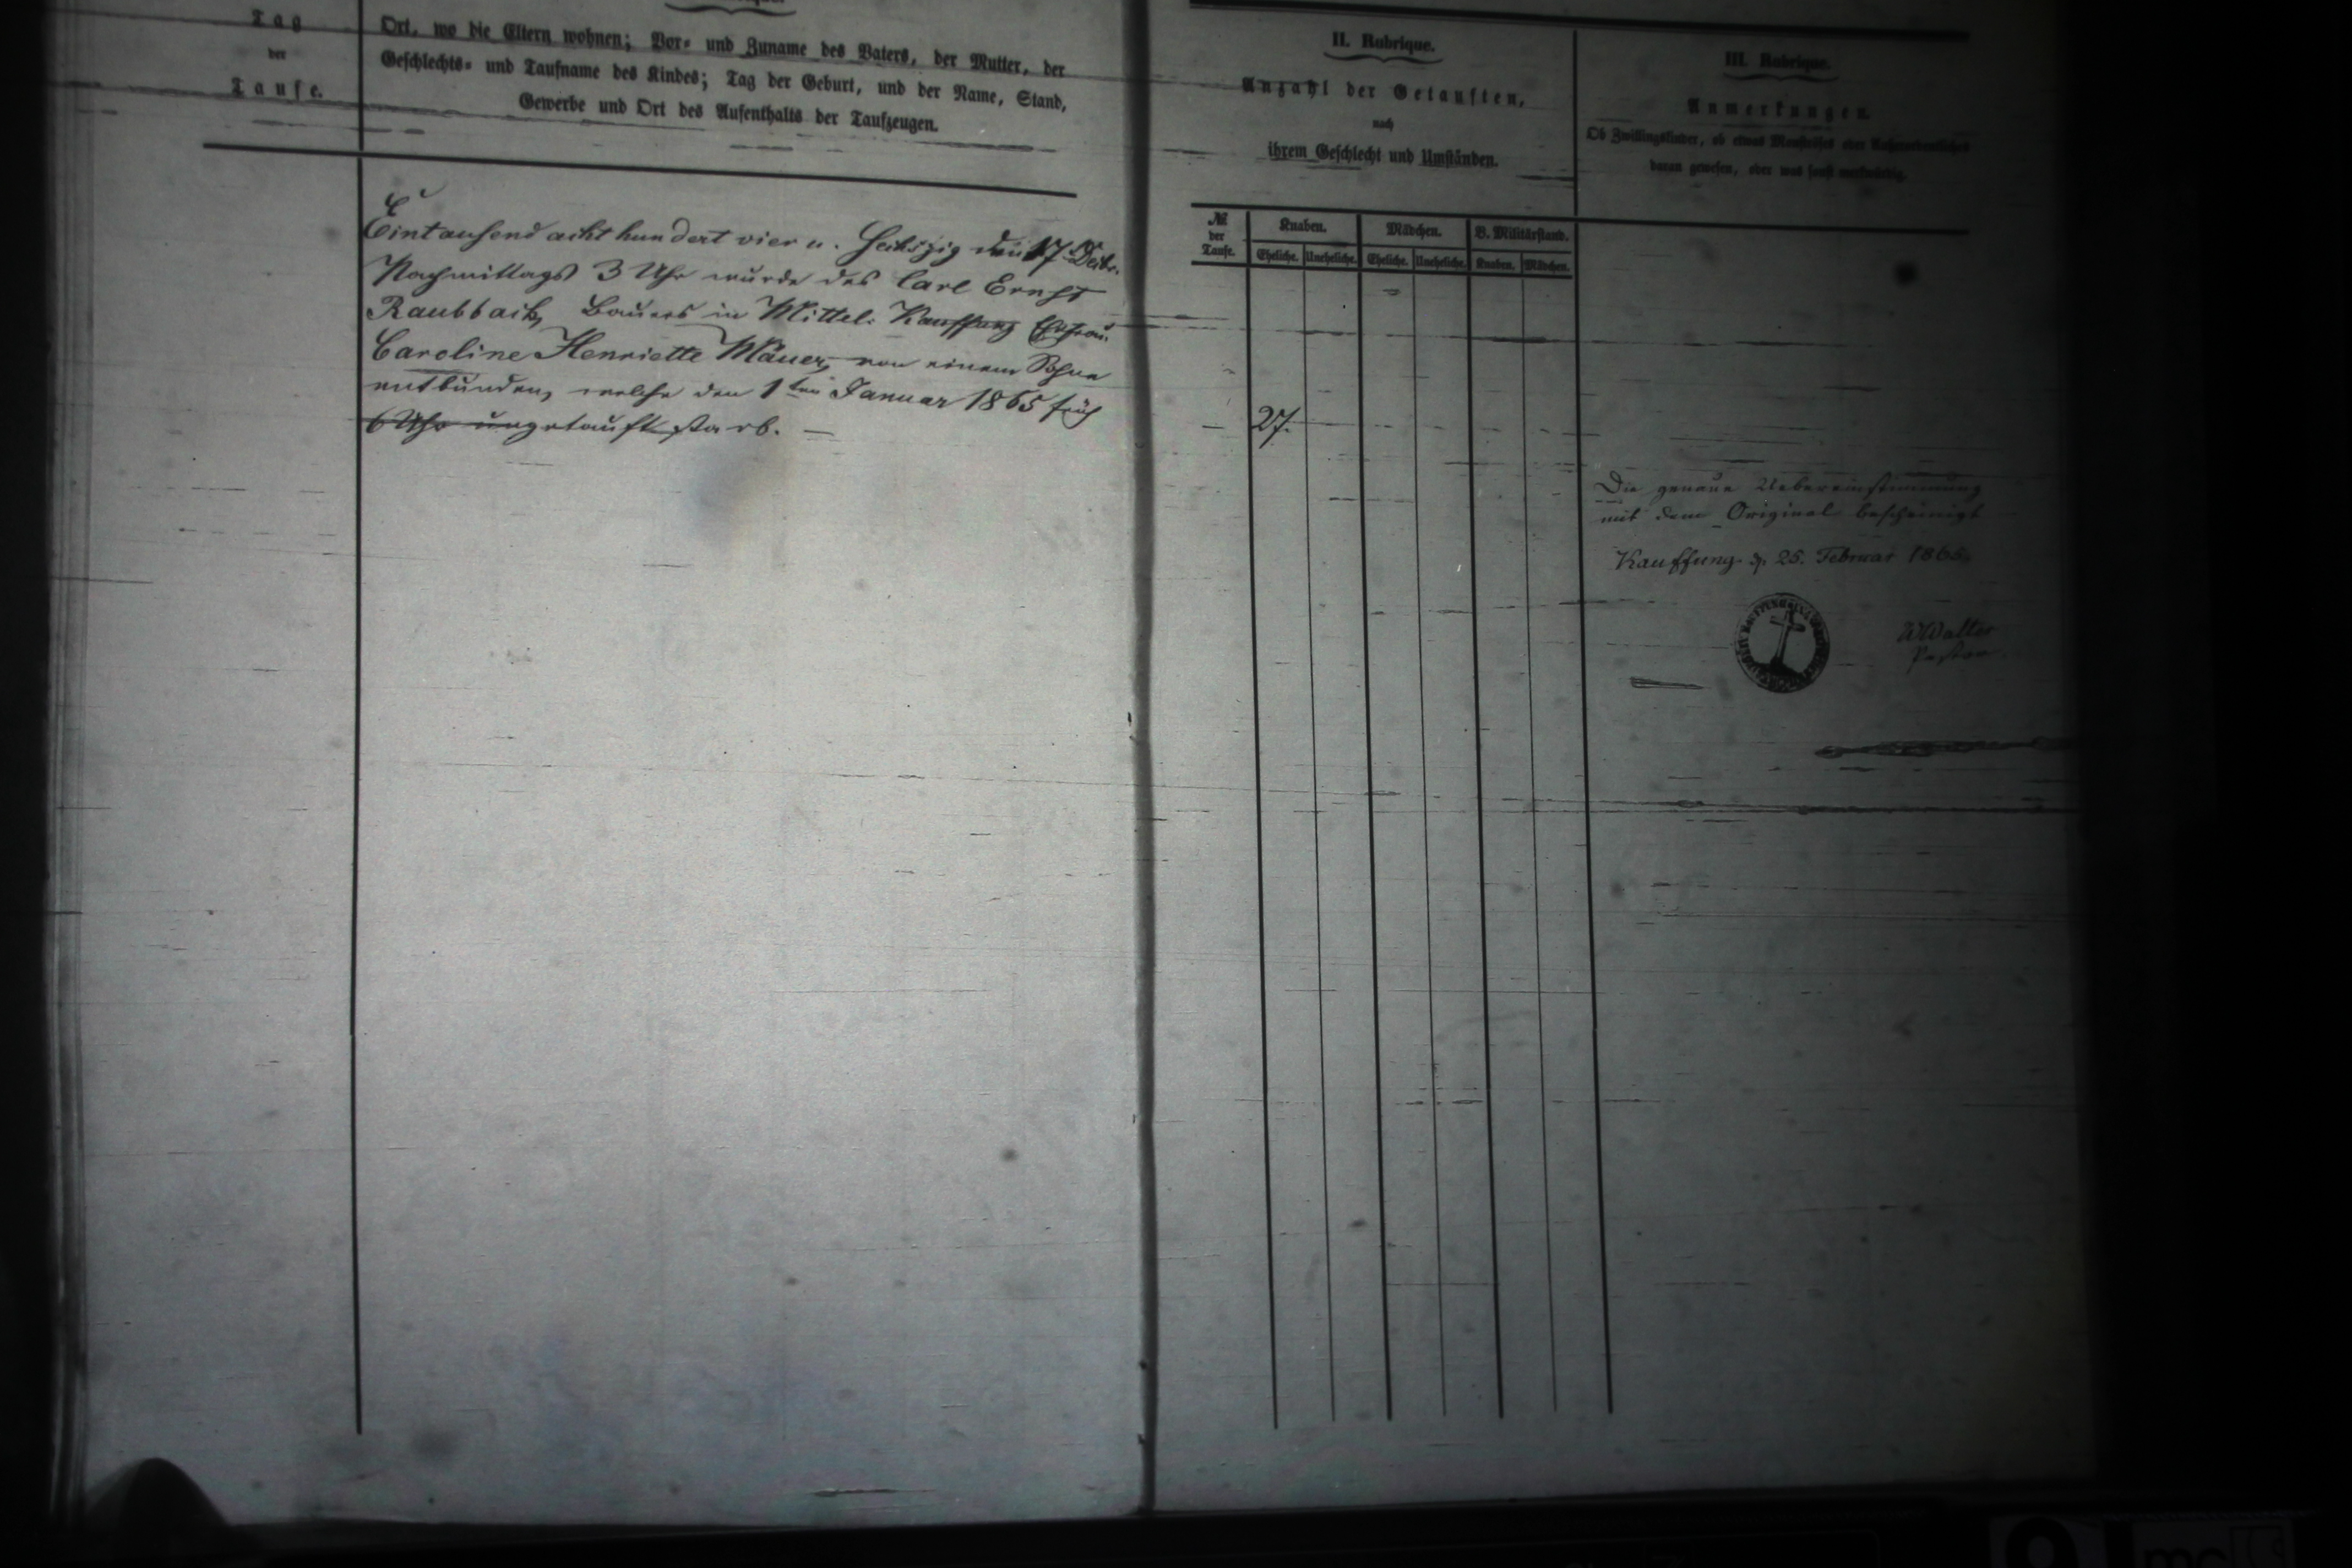 Tag
der
Taufe.
Ort, wo die Eltern wohnen; Vor- und Zuname des Vaters, der Mutter, der
Geschlechts- und Taufname des Kindes; Tag der Geburt, und der Name, Stand,
Gewerbe und Ort des Aufenthalts der Taufzeugen.
Eintausend acht hundert vier u. Sechszig den 17. Decbr.
Nachmittags 3 Uhr wurde des Carl Ernst
Raubbach, Bauers in Mittel: Kauffung Ehefrau.
Caroline Henriette Mäuer, von einem Sohne
entbunden, welche den 1ten Januar 1865 früh
6 Uhr ungetauft starb. —
II. Rubrique.
Anzahl der Getauften,
nach
ihrem Geschlecht und Umständen.
№ der Taufe.
Knaben. Mädchen. B. Militärstand.
Eheliche. Uneheliche. Eheliche. Uneheliche. Knaben. Mädchen.
— 27.
III. Rubrique.
Anmerkungen.
Ob Zwillingskinder, ob etwas Monströses oder Außerordentliches
daran gewesen, oder was sonst merkwürdig.
Die genaue Uebereinstimmung
mit dem Original bescheinigt
Kauffung d. 25. Februar 1865.
Walter
Pastor.